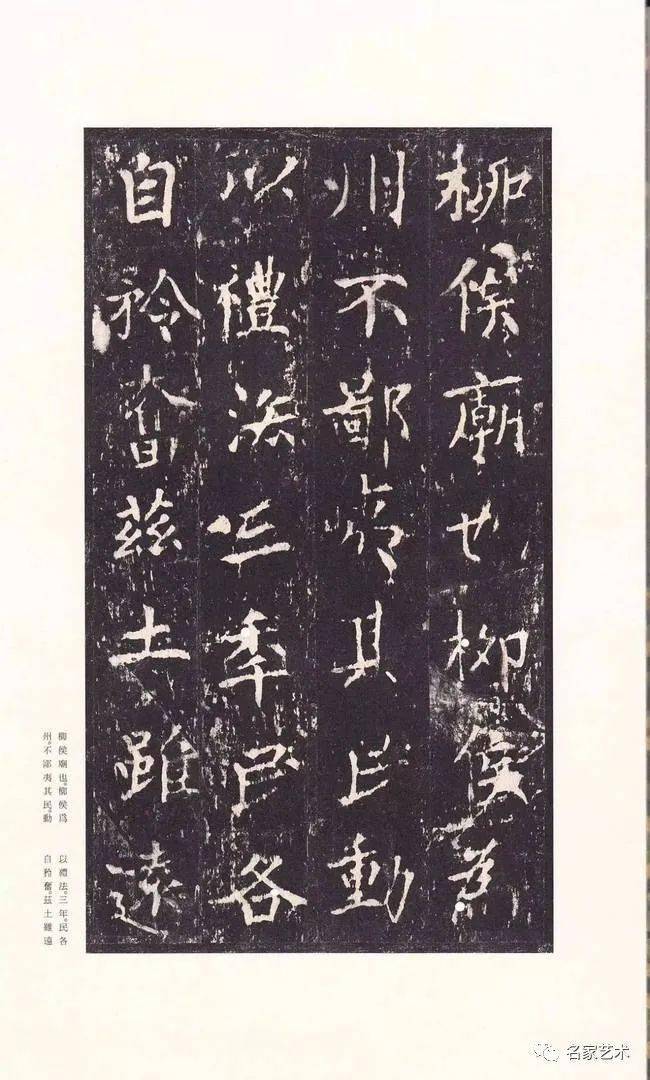 柳侯廟也柳侯爲
州不鄙夷其民動
以禮法三年民各
自矜奮茲土雖遠
柳侯廟也。柳侯爲
州。不鄙夷其民。動
以禮法。三年。民各
自矜奮。茲土雖遠
名家艺术